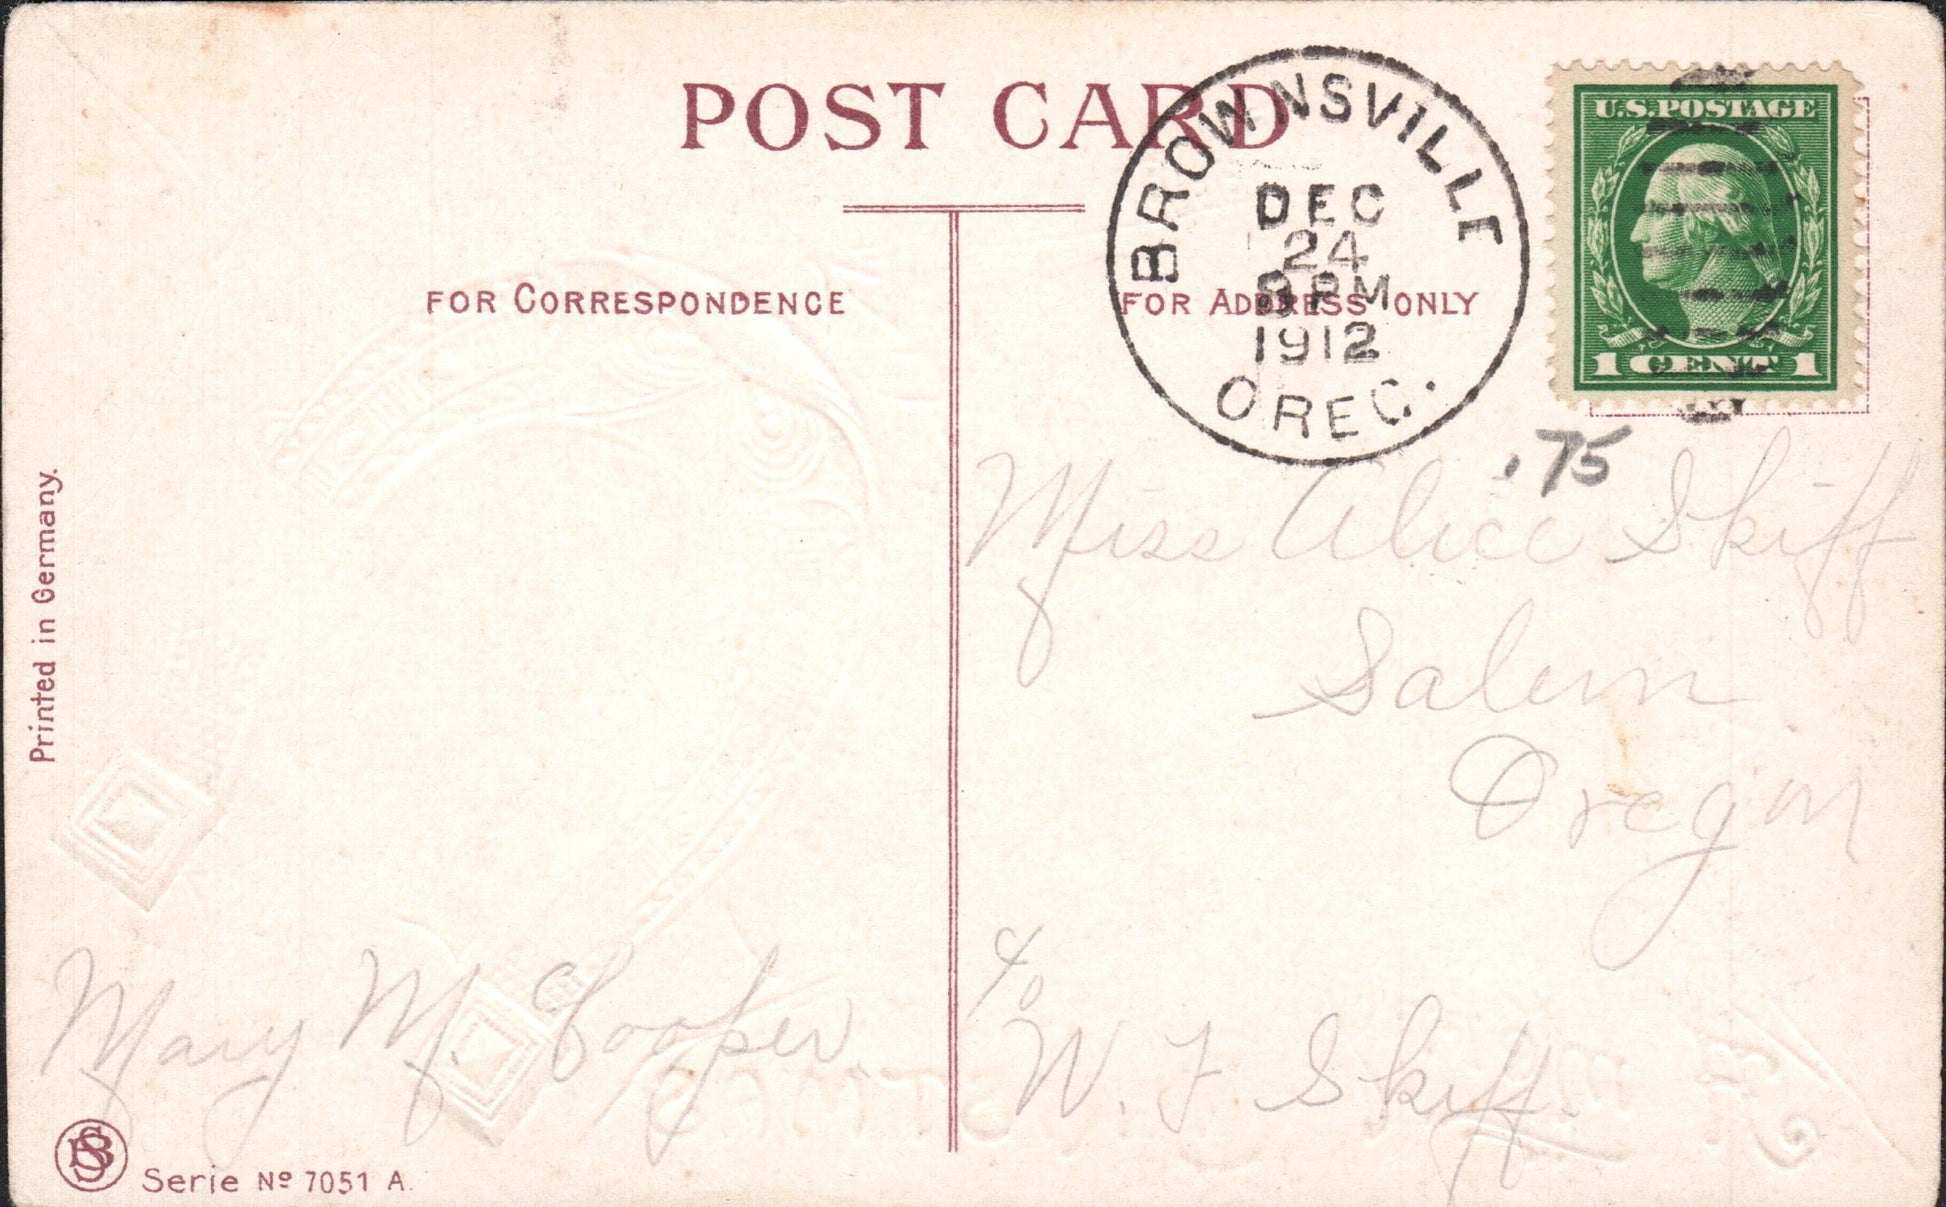 POST CARD
BROWNSVILLE
DEC
24
8 PM
1912
OREG.
U.S.POSTAGE
1 CENT 1
FOR CORRESPONDENCE
FOR ADDRESS ONLY
.75
Miss Alice Skiff
Salem
Oregon
c/o
W. T Skiff.
Mary M. Cooper.
Printed in Germany.
BS
Serie Nº 7051 A.